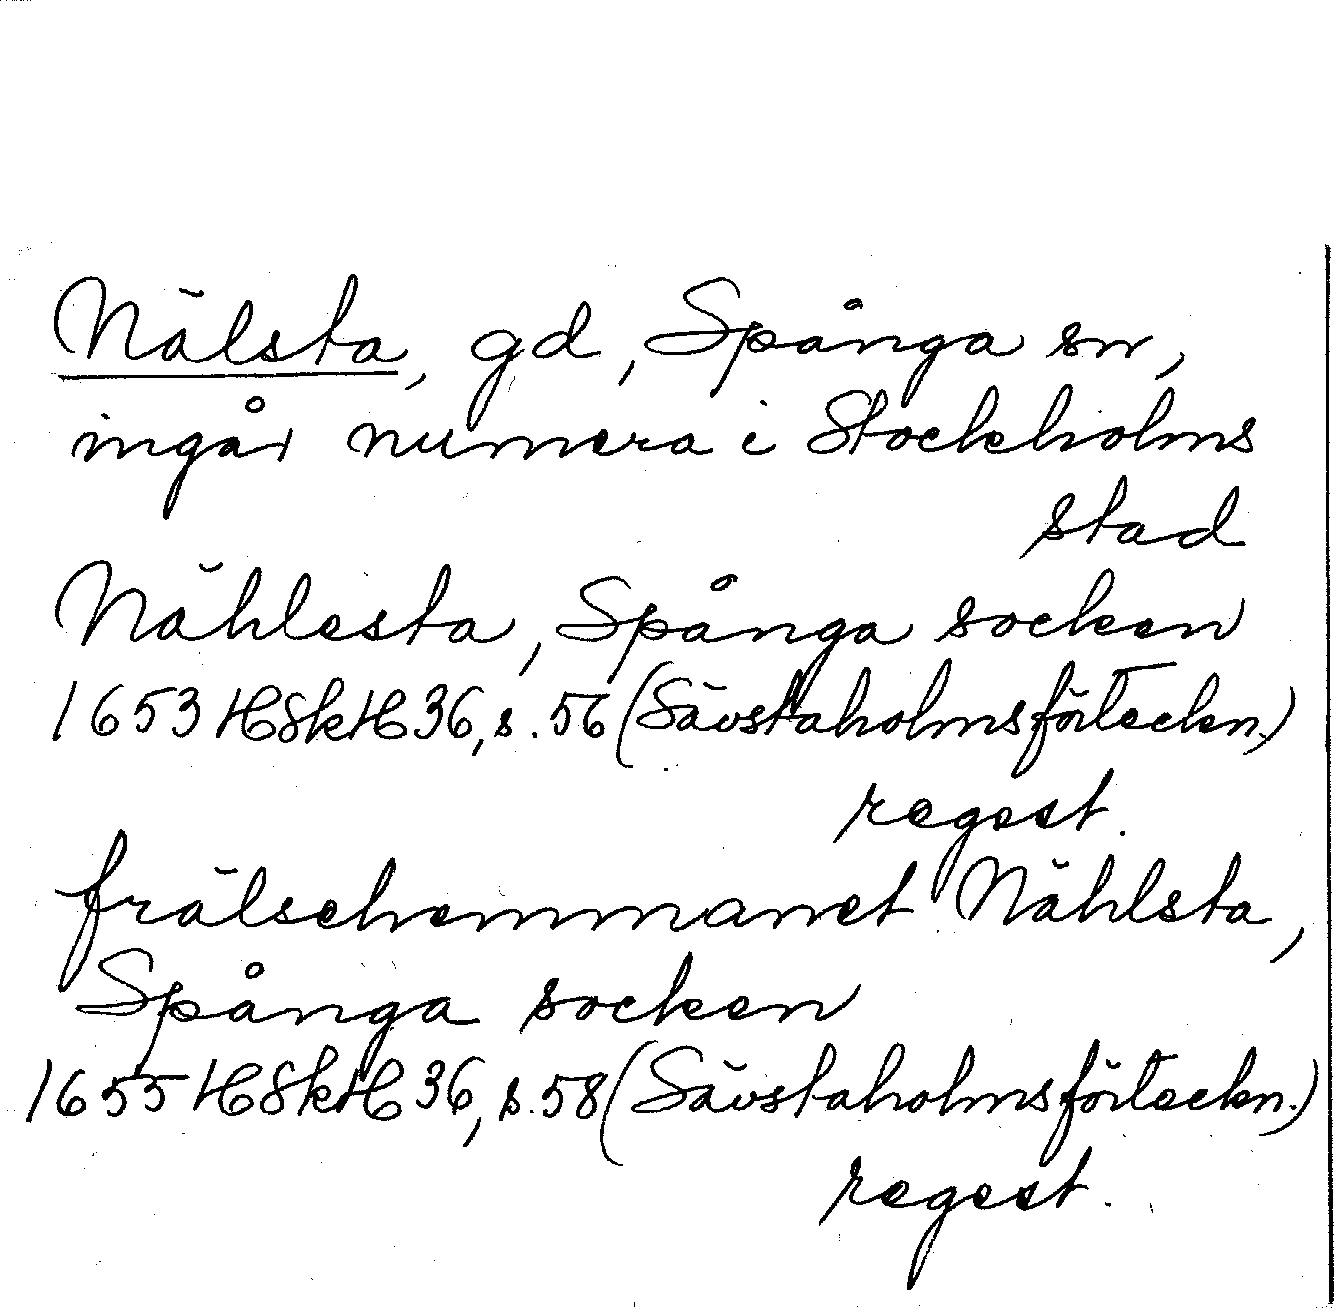 Nälsta, gd, Spånga sn,
ingår numera i Stockholms
stad
Nählesta, Spånga socken
1653 HSkH 36, s. 56 (Sävstaholmsförteckn.)
regest.
frälsehemmanet Nählsta,
Spånga socken
1655 HSkH 36, s. 58 (Sävstaholmsförteckn.)
regest.